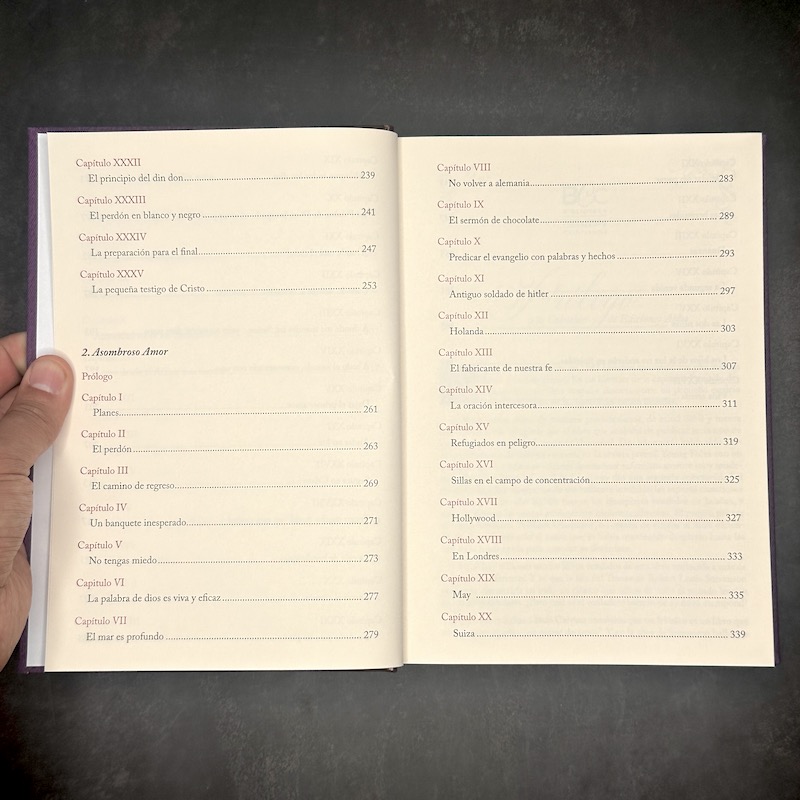 Capítulo XXXII
El principio del din don 239
Capítulo XXXIII
El perdón en blanco y negro 241
Capítulo XXXIV
La preparación para el final 247
Capítulo XXXV
La pequeña testigo de Cristo 253
2. Asombroso Amor
Prólogo
Capítulo I
Planes 261
Capítulo II
El perdón 263
Capítulo III
El camino de regreso 269
Capítulo IV
Un banquete inesperado 271
Capítulo V
No tengas miedo 273
Capítulo VI
La palabra de dios es viva y eficaz 277
Capítulo VII
El mar es profundo 279
Capítulo VIII
No volver a alemania 283
Capítulo IX
El sermón de chocolate 289
Capítulo X
Predicar el evangelio con palabras y hechos 293
Capítulo XI
Antiguo soldado de hitler 297
Capítulo XII
Holanda 303
Capítulo XIII
El fabricante de nuestra fe 307
Capítulo XIV
La oración intercesora 311
Capítulo XV
Refugiados en peligro 319
Capítulo XVI
Sillas en el campo de concentración 325
Capítulo XVII
Hollywood 327
Capítulo XVIII
En Londres 333
Capítulo XIX
May 335
Capítulo XX
Suiza 339